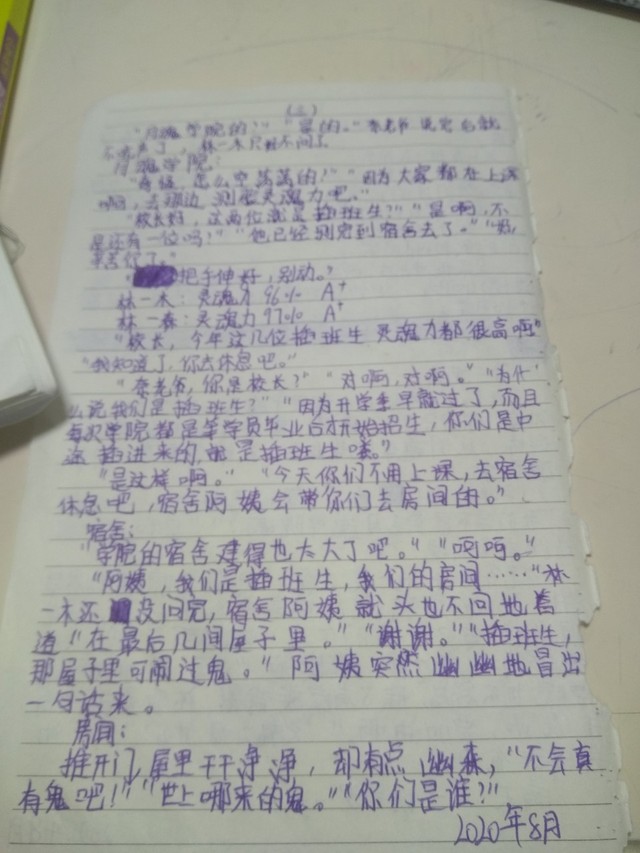 (二)
"月魂学院的?""是的。"李老爷说完也就
不说话了,林一木只好不问了。
月魂学院:
"奇怪,怎么空荡荡的?""因为大家都在上课
啊,去那边测应灵魂力吧。"
"校长好,这两位就是插班生?""是啊,不
是还有一位吗?""他已经测完到宿舍去了。""好,
辛苦你了。"
"把手伸好,别动。"
林一木:灵魂力96% A⁺
林一森:灵魂力97% A⁺
"校长,今年这几位插班生灵魂力都很高啊"
"我知道了,你去休息吧。"
"李老爷,你是校长?""对啊,对啊。""为什
么说我们是插班生?""因为开学季早就过了,而且
每次学院都是等学员毕业后才开始招生,你们是中
途插进来的,就是插班生喽。"
"是这样啊。""今天你们不用上课,去宿舍
休息吧,宿舍阿姨会带你们去房间的。"
宿舍:
"学院的宿舍建得也太大了吧。""呵呵。"
"阿姨,我们是插班生,我们的房间……"林
一木还没问完,宿舍阿姨就头也不回地答
道"在最后几间屋子里。""谢谢。""插班生,
那屋子里可闹过鬼。"阿姨突然幽幽地冒出
一句话来。
房间:
推开门,屋里干干净净,却有点幽森,"不会真
有鬼吧!""世上哪来的鬼。""你们是谁?"
2020年8月